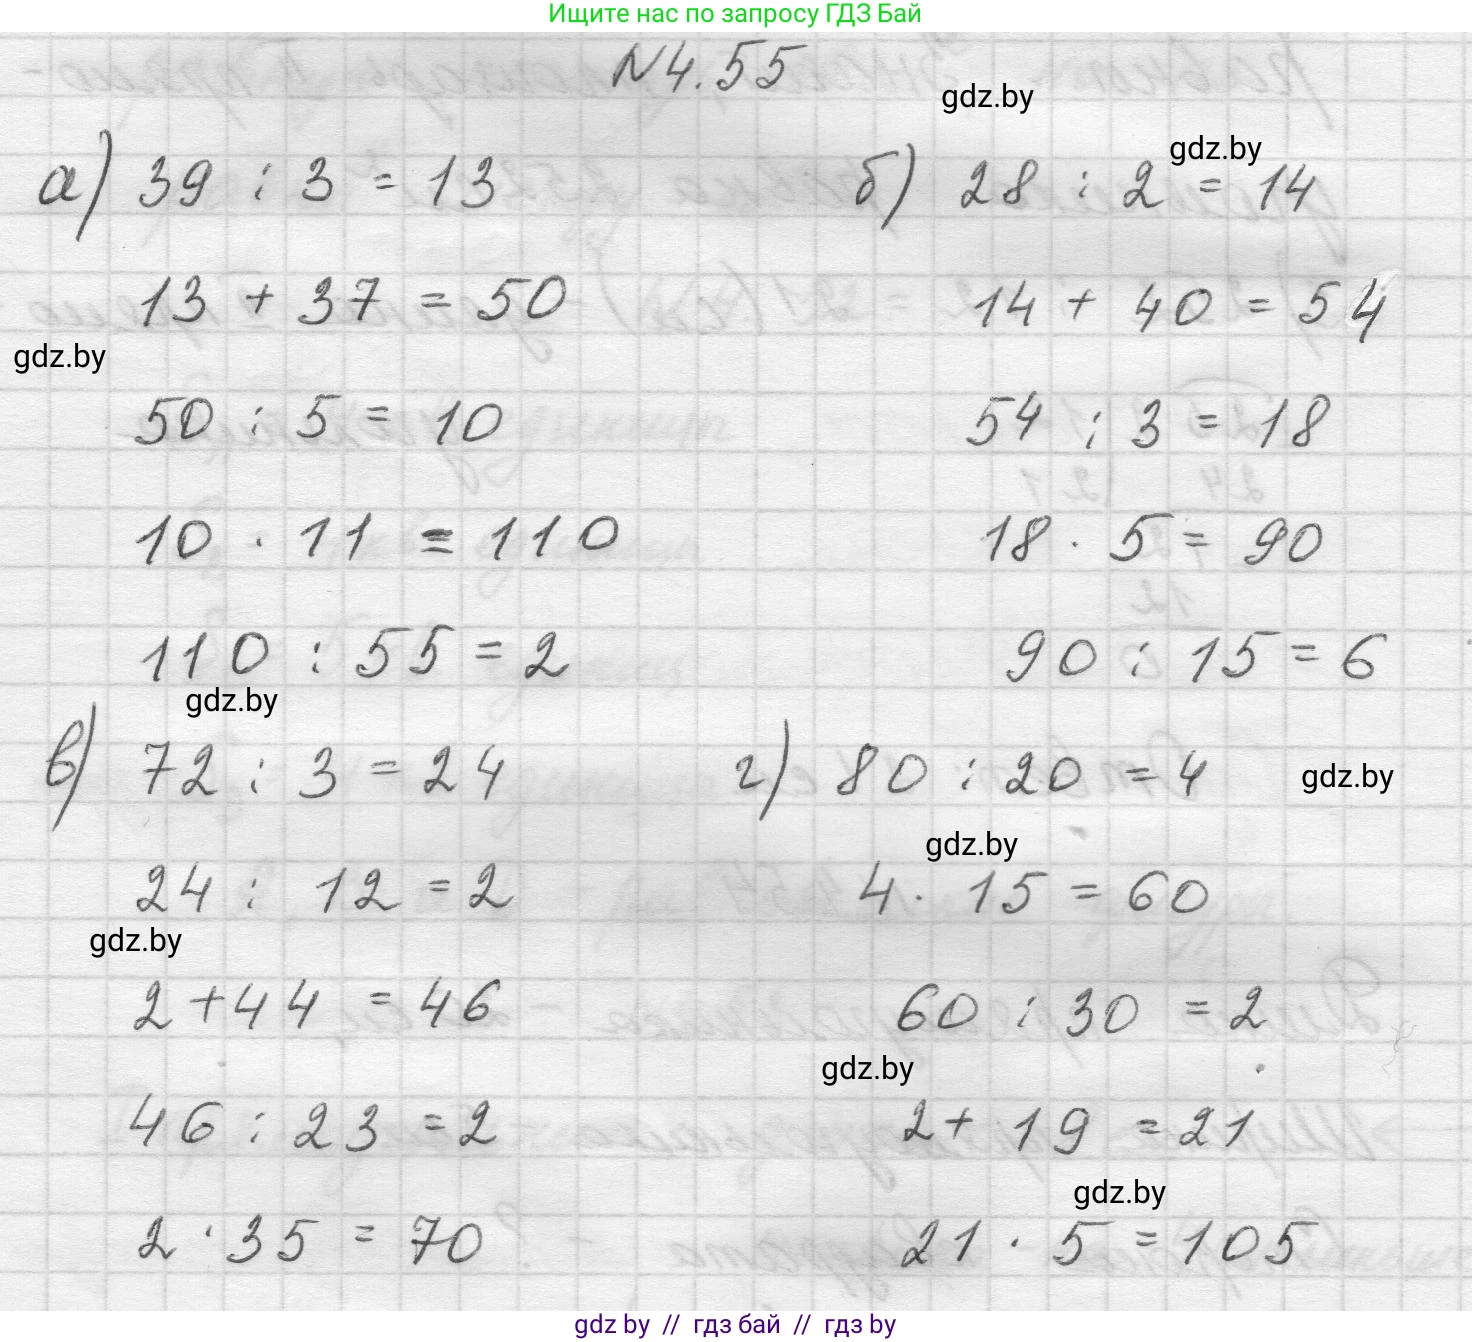 Ищите нас по запросу ГДЗ Бай
N4.55
gdz.by
gdz.by
а) 39 : 3 = 13
13 + 37 = 50
gdz.by
50 : 5 = 10
10 · 11 = 110
110 : 55 = 2
gdz.by
б) 28 : 2 = 14
14 + 40 = 54
54 : 3 = 18
18 · 5 = 90
90 : 15 = 6
в) 72 : 3 = 24
24 : 12 = 2
gdz.by
2 + 44 = 46
46 : 23 = 2
2 · 35 = 70
г) 80 : 20 = 4
gdz.by
gdz.by
4 · 15 = 60
60 : 30 = 2
gdz.by
2 + 19 = 21
gdz.by
21 · 5 = 105
gdz by // гдз бай // гдз by